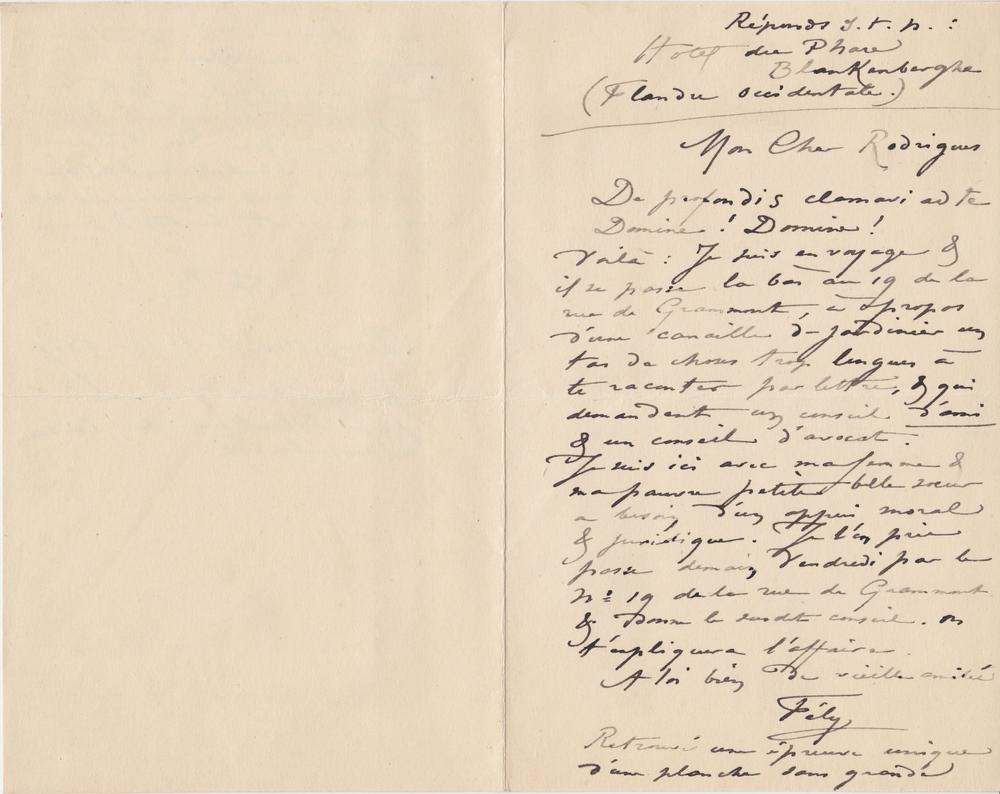 Réponds s. t. p. :
Hotel du Phare
Blankenberghe
(Flandre occidentale.)
Mon Cher Rodrigues
De profondis clamavi ad te
Domine ! Domine !
Voilà : Je suis en voyage &
il se passe la bas au 19 de la
rue de Grammont, à propos
d'une canaille de jardinier un
tas de choses trop longues à
te raconter par lettre, & qui
demandent un conseil d'ami
& un conseil d'avocat.
Je suis ici avec ma femme &
ma pauvre petite belle soeur
a besoin d'un appui moral
& juridique. Je t'en prie
passe demain Vendredi par le
No 19 de la rue de Grammont
& donne le susdit conseil. on
t'expliquera l'affaire.
A toi bien de vieille amitié
Fély
Retrouvé une épreuve unique
d'une planche sans grande